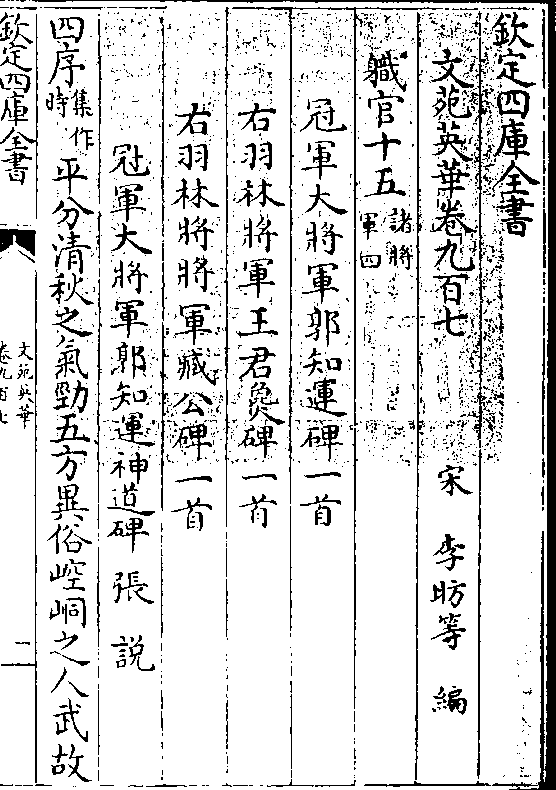 欽定四庫全書
文苑英華卷九百七
宋 李昉等 編
職官十五 諸將軍四
冠軍大將軍郭知運碑一首
右羽林將軍王君㚟碑一首
右羽林將將軍臧公碑一首
冠軍大將軍郭知運神道碑 張說
四序集作時平分清秋之氣勁五方異俗崆峒之人武故
欽定四庫全書
文苑英華
卷九百七
二